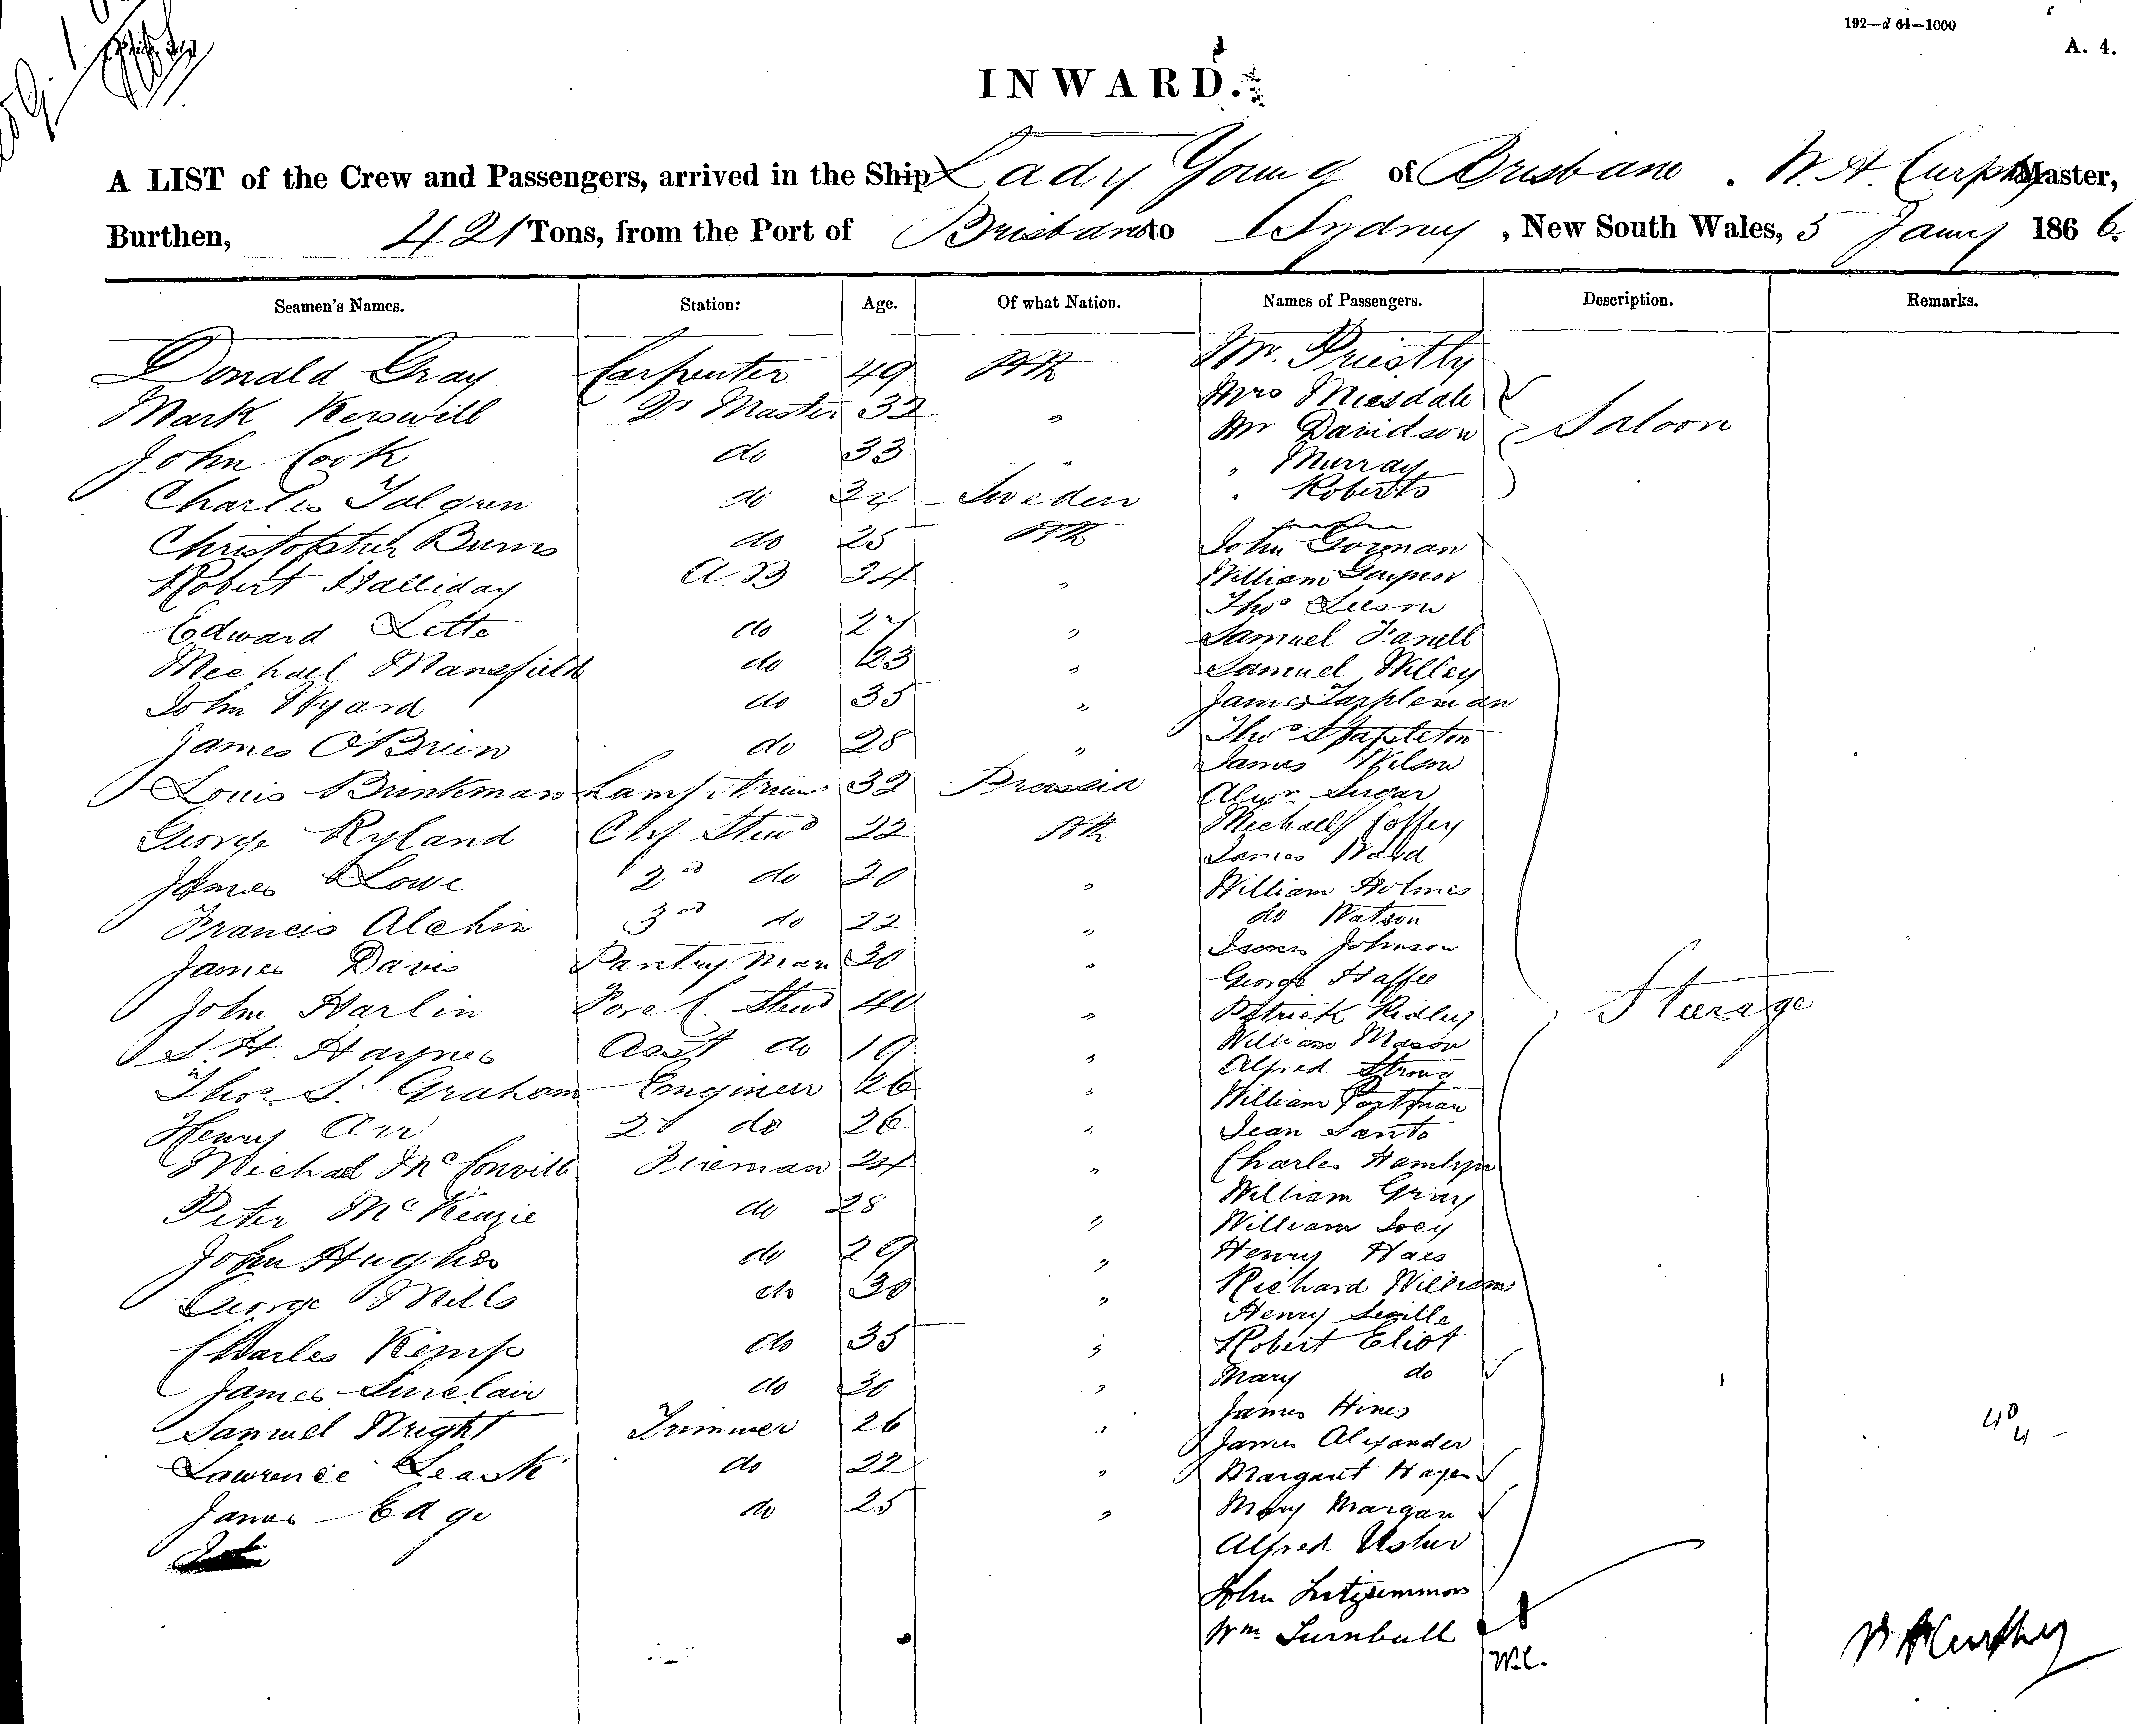 192—d 64—1000
A. 4.
INWARD.
A LIST of the Crew and Passengers, arrived in the Ship Lady Young of Brisbane . W. A. Curphey Master,
Burthen, 421 Tons, from the Port of Brisbane to Sydney , New South Wales, 5 Jany 1866.
Seamen's Names. Station: Age. Of what Nation. Names of Passengers. Description. Remarks.
Donald Gray Carpenter 49 Mr. Priestly
Mark Kerswill Qr Master 32 " Mrs
John Cook do 33 " Mr Davidson Saloon
" Murray
Charles Talgren do 24 Sweden " Roberts
Christopher Burns do 25 John Gorman
Robert Halliday A B 34 " William
Thos Leeson
Edward Lette do 27 " Samuel Farrell
Michael Mansfield do 23 " Samuel Willey
John Wyard do 35 " James Tarpleman
James O'Brien do 28 " Thos Stapleton
James Wilson
Louis Brinkman Lamp Trimr 32 Prussia Alexr Sugar
George Ryland Chf Stewd 22 Michael Coffey
James Ward
James Lowe 2nd do 20 " William Holmes
Francis Alchin 3rd do 22 " do Watson
James Davis Pantry Man 30 " Johnson
George Haffee
John Harlin Fore C. Stewd 40 " Patrick Ridley
S. H. Haynes Asst do 19 " William Mason
Thos S. Graham Engineer 26 " Alfred Strong
William Portman
Henry Orr 2d do 26 " Jean Santo
Michael McConvill Fireman 24 " Charles Hamlyn
Peter McKenzie do 28 " William Gray
William Ivey
John Hughes do 29 " Henry Haes
George Mills do 30 " Richard Williams
Henry Seville
Charles Kemp do 35 " Robert Eliot
James Sinclair do 30 " Mary do
James Hines
Samuel Wright Trimmer 26 " James Alexander
Lawrence Leask do 22 " Margaret Hayes
James Edge do 25 " Mary Margan
Alfred Usher
John Fitzsimmons
Wm Turnbull
Steerage
W.C.
W A Curphey